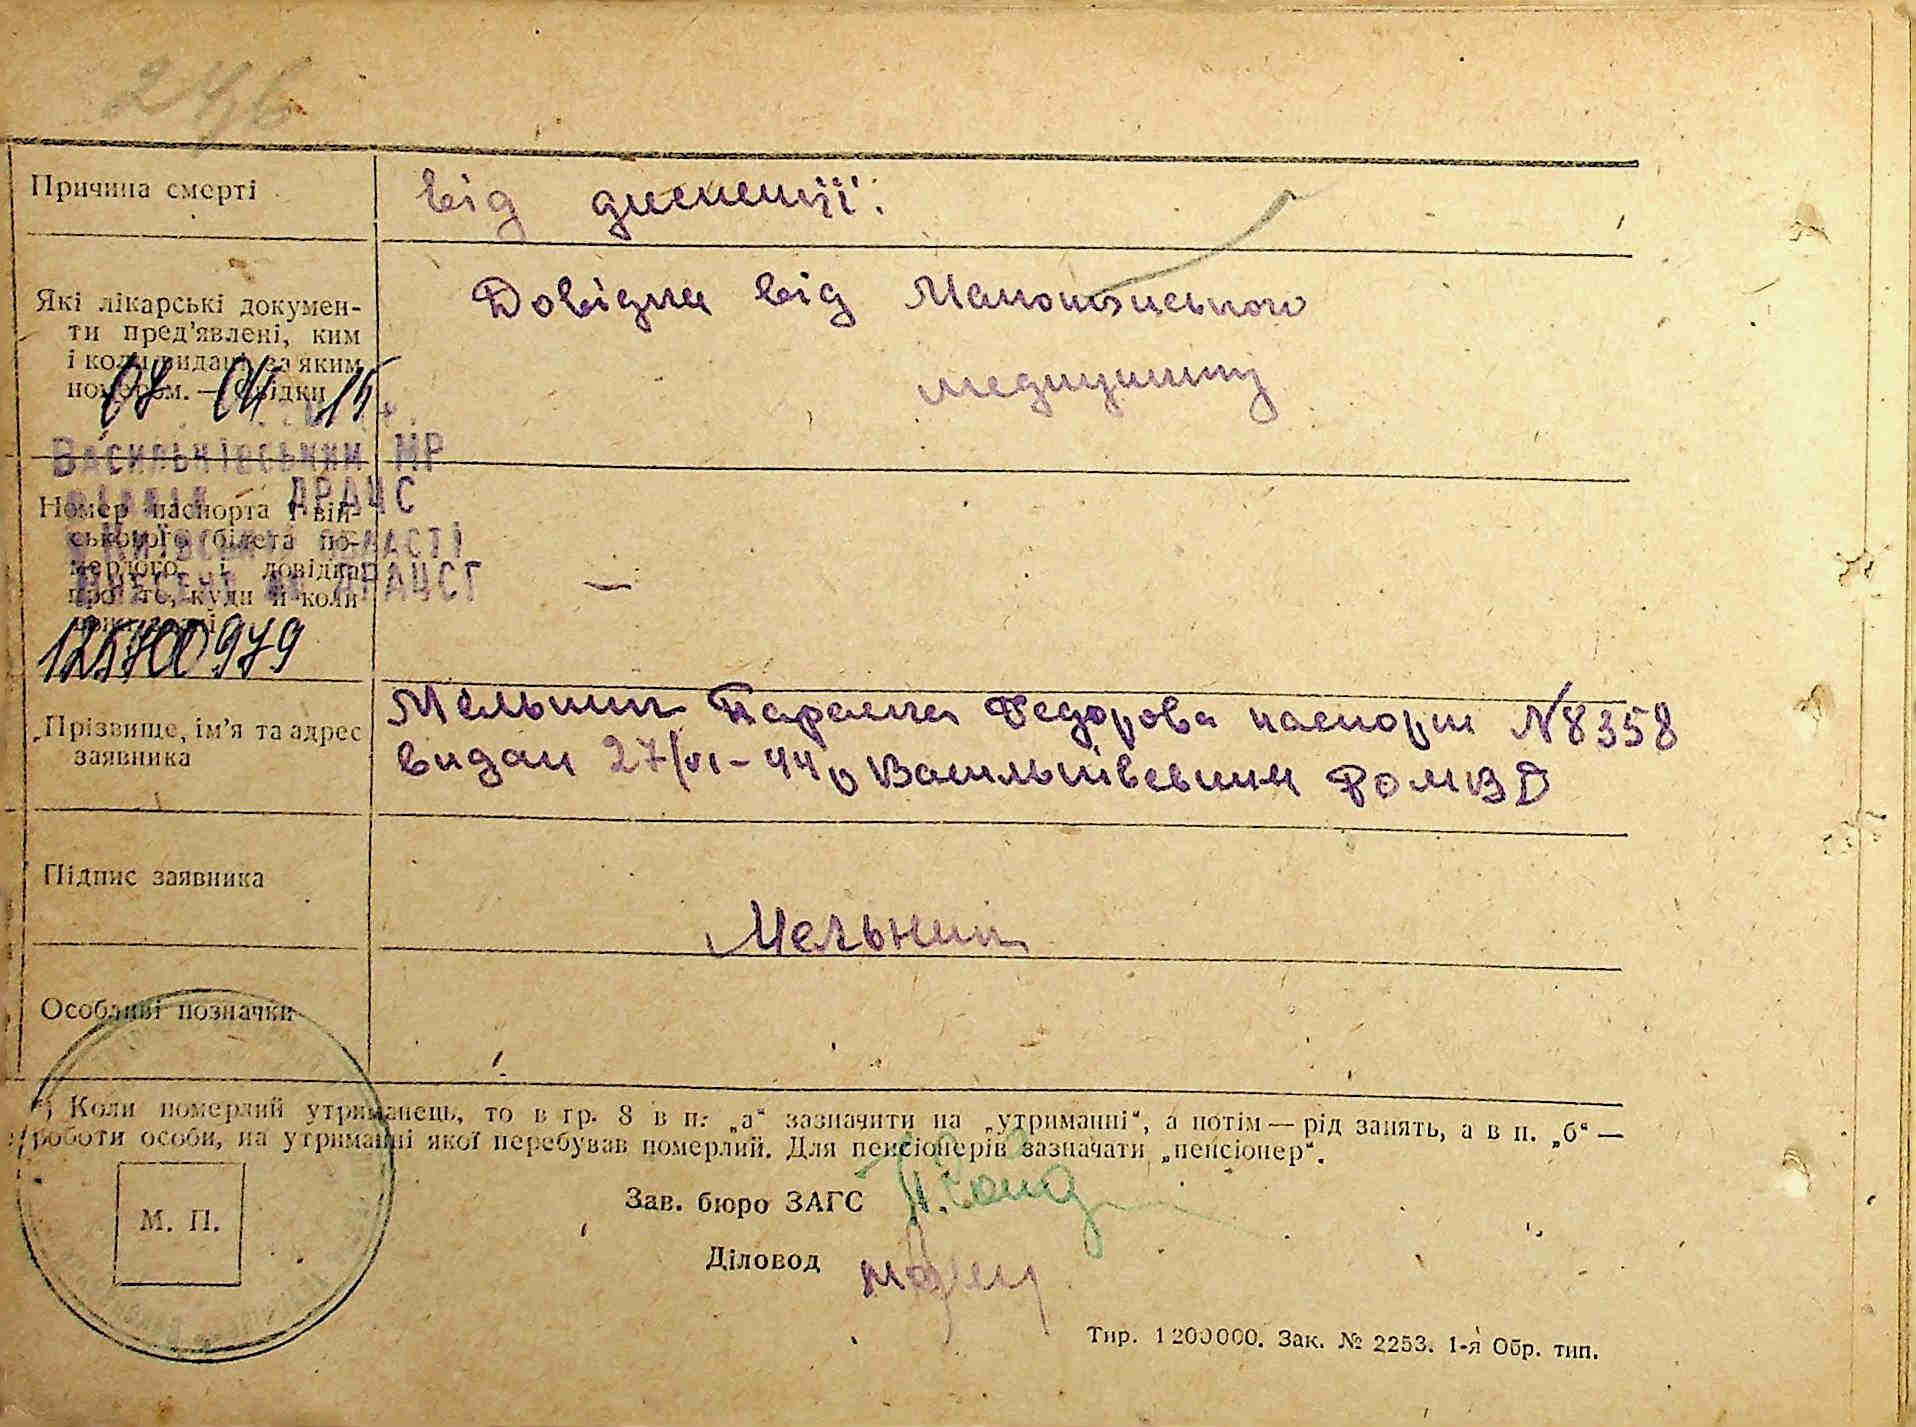 246
Причина смерті
від диспепсії.
Які лікарські докумен-
ти пред'явлені, ким
і коли видані, за яким
номером. — Свідки
Довідка від
медпункту
08 04 15
Васильківський МР
відділ ДРАЦС
Київської області
внесено до ДРАЦСГ
Номер паспорта і вій-
ськового білета по-
мерлого і довідка
про те, куди й коли
125700979
Прізвище, ім'я та адрес
заявника
Мельник Параска Федорова паспорт №8358
видан 27/VI-44р Васильківським РОМВД
Підпис заявника
Мельник
Особливі позначки
*) Коли померлий утриманець, то в гр. 8 в п. „а“ зазначити на „утриманні“, а потім — рід занять, а в п. „б“ —
роботи особи, на утриманні якої перебував померлий. Для пенсіонерів зазначати „пенсіонер“.
М. П.
Зав. бюро ЗАГС
Діловод
Тир. 1200000. Зак. № 2253. 1-я Обр. тип.